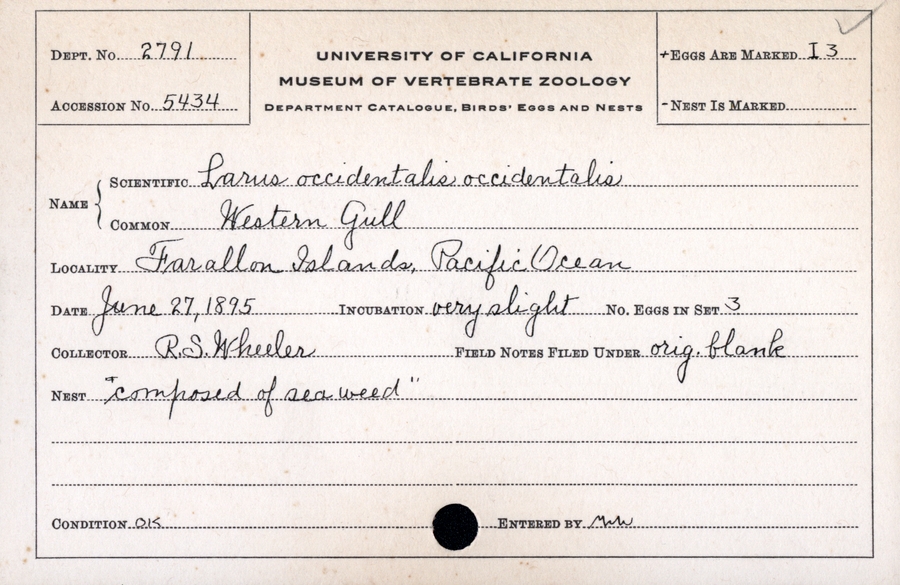 DEPT. NO. 2791
ACCESSION NO. 5434
UNIVERSITY OF CALIFORNIA
MUSEUM OF VERTEBRATE ZOOLOGY
DEPARTMENT CATALOGUE, BIRDS' EGGS AND NESTS
+EGGS ARE MARKED I 3
-NEST IS MARKED
NAME
SCIENTIFIC Larus occidentalis occidentalis
COMMON Western Gull
LOCALITY Farallon Islands, Pacific Ocean
DATE June 27, 1895 INCUBATION very slight NO. EGGS IN SET 3
COLLECTOR R.S. Wheeler FIELD NOTES FILED UNDER orig. blank
NEST "composed of sea weed"
CONDITION OK ENTERED BY